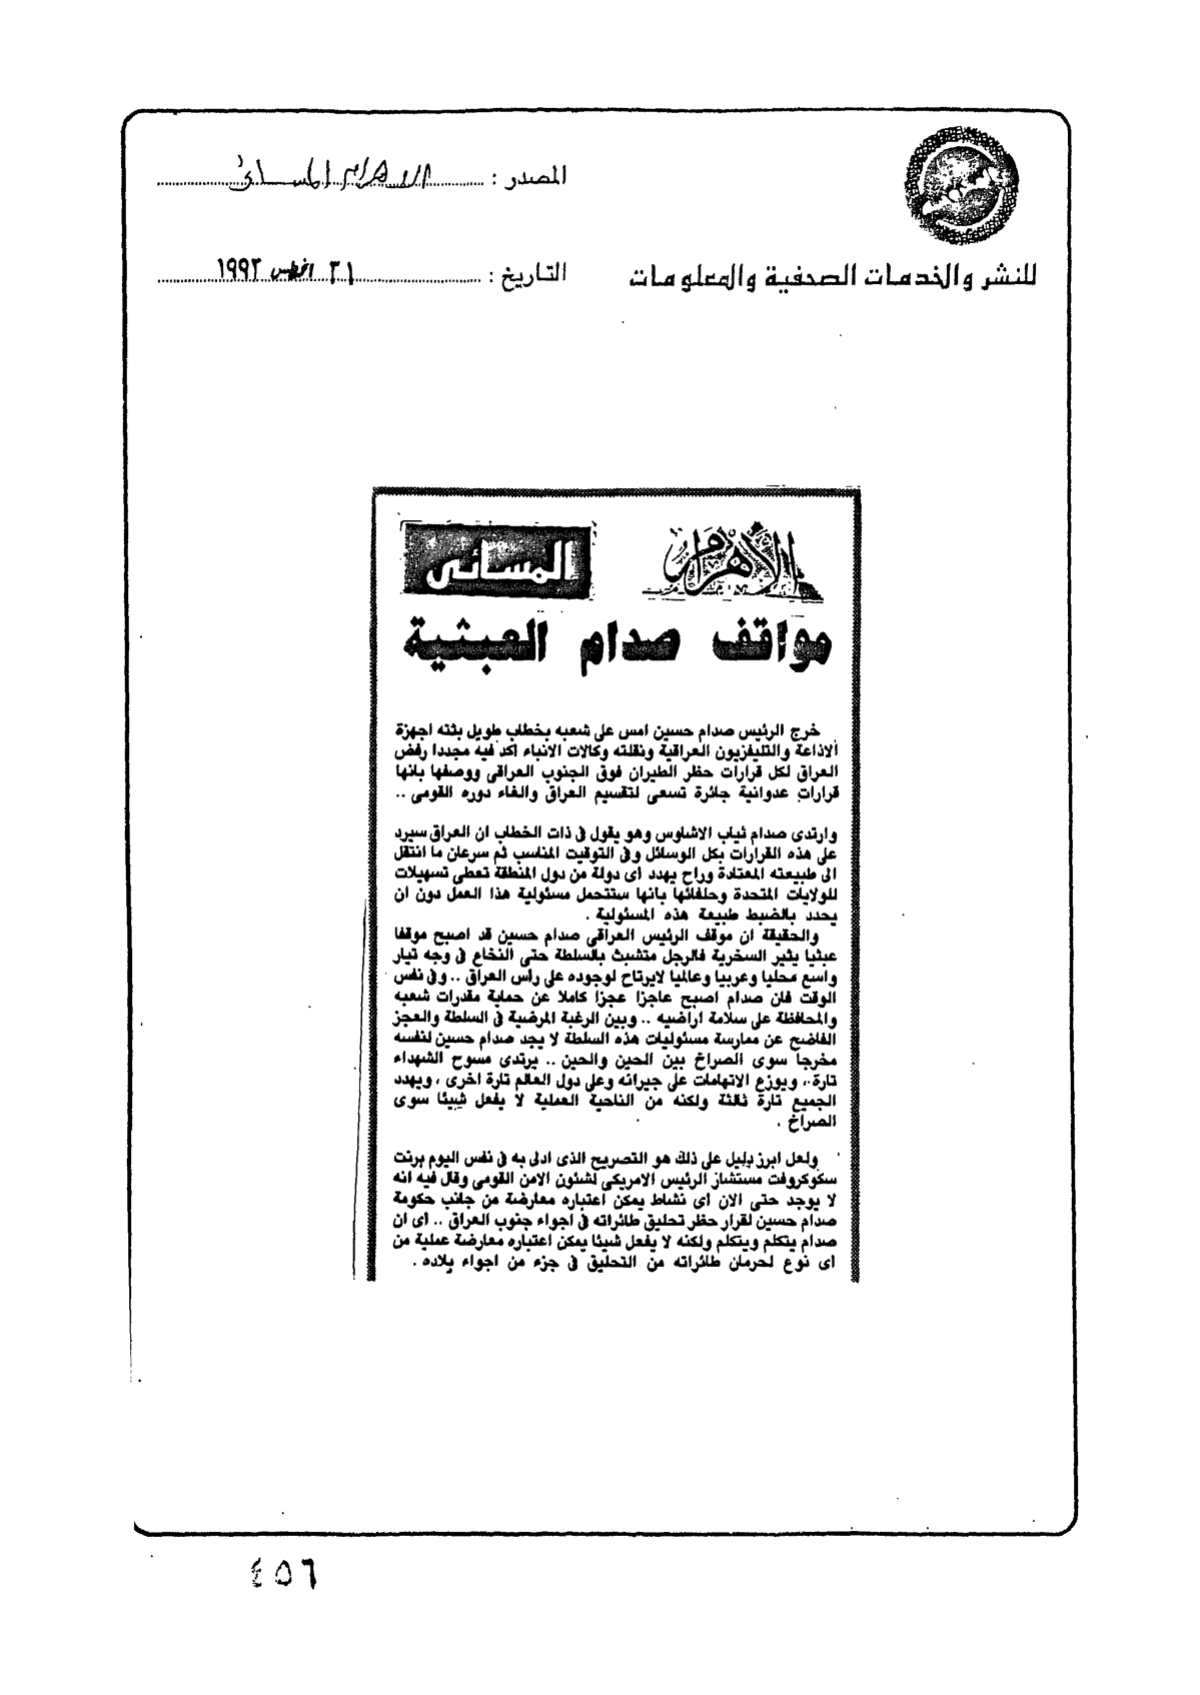 المصدر : الاهرام المسائى
للنشر والخدمات الصحفية والمعلومات
التاريخ : ٣١ اغسطس ١٩٩٢
الأهرام المسائى
مواقف صدام العبثية
خرج الرئيس صدام حسين امس على شعبه بخطاب طويل بثته اجهزة
الاذاعة والتليفزيون العراقية ونقلته وكالات الانباء اكد فيه مجددا رفض
العراق لكل قرارات حظر الطيران فوق الجنوب العراقى ووصفها بانها
قرارات عدوانية جائرة تسعى لتقسيم العراق والغاء دوره القومى ..
وارتدى صدام ثياب الاشاوس وهو يقول فى ذات الخطاب ان العراق سيرد
على هذه القرارات بكل الوسائل وفى التوقيت المناسب ثم سرعان ما انتقل
الى طبيعته المعتادة وراح يهدد اى دولة من دول المنطقة تعطى تسهيلات
للولايات المتحدة وحلفائها بانها ستتحمل مسئولية هذا العمل دون ان
يحدد بالضبط طبيعة هذه المسئولية .
والحقيقة ان موقف الرئيس العراقى صدام حسين قد اصبح موقفا
عبثيا يثير السخرية فالرجل متشبث بالسلطة حتى النخاع فى وجه تيار
واسع محليا وعربيا وعالميا لايرتاح لوجوده على رأس العراق .. وفى نفس
الوقت فان صدام اصبح عاجزا عجزا كاملا عن حماية مقدرات شعبه
والمحافظة على سلامة اراضيه .. وبين الرغبة المرضية فى السلطة والعجز
الفاضح عن ممارسة مسئوليات هذه السلطة لا يجد صدام حسين لنفسه
مخرجا سوى الصراخ بين الحين والحين .. يرتدى مسوح الشهداء
تارة ، ويوزع الاتهامات على جيرانه وعلى دول العالم تارة اخرى ، ويهدد
الجميع تارة ثالثة ولكنه من الناحية العملية لا يفعل شيئا سوى
الصراخ .
ولعل ابرز دليل على ذلك هو التصريح الذى ادلى به فى نفس اليوم برنت
سكوكروفت مستشار الرئيس الامريكى لشئون الامن القومى وقال فيه انه
لا يوجد حتى الان اى نشاط يمكن اعتباره معارضة من جانب حكومة
صدام حسين لقرار حظر تحليق طائراته فى اجواء جنوب العراق .. اى ان
صدام يتكلم ويتكلم ولكنه لا يفعل شيئا يمكن اعتباره معارضة عملية من
اى نوع لحرمان طائراته من التحليق فى جزء من اجواء بلاده .
٤٥٦